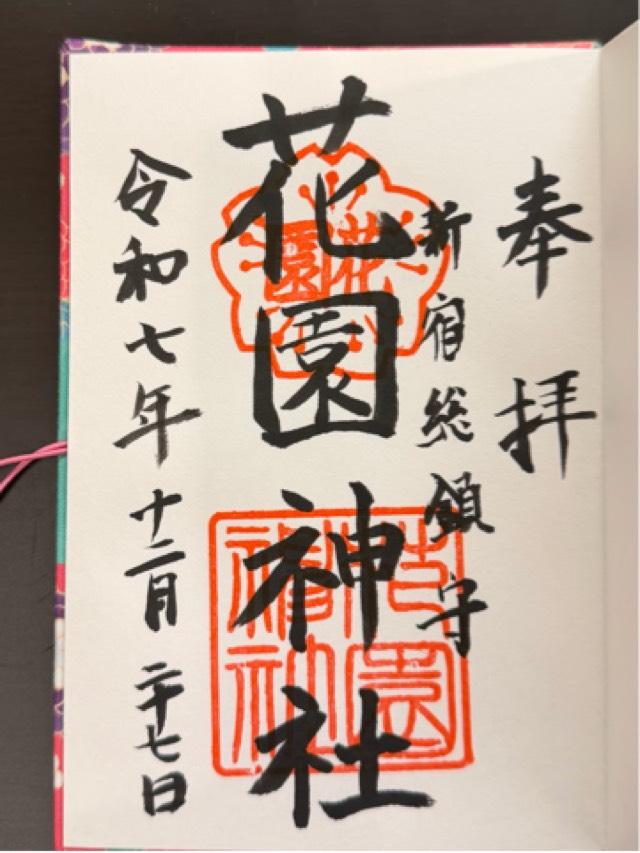 奉拝
新宿総鎮守
花園神社
花園
花園神社
令和七年十二月二十七日